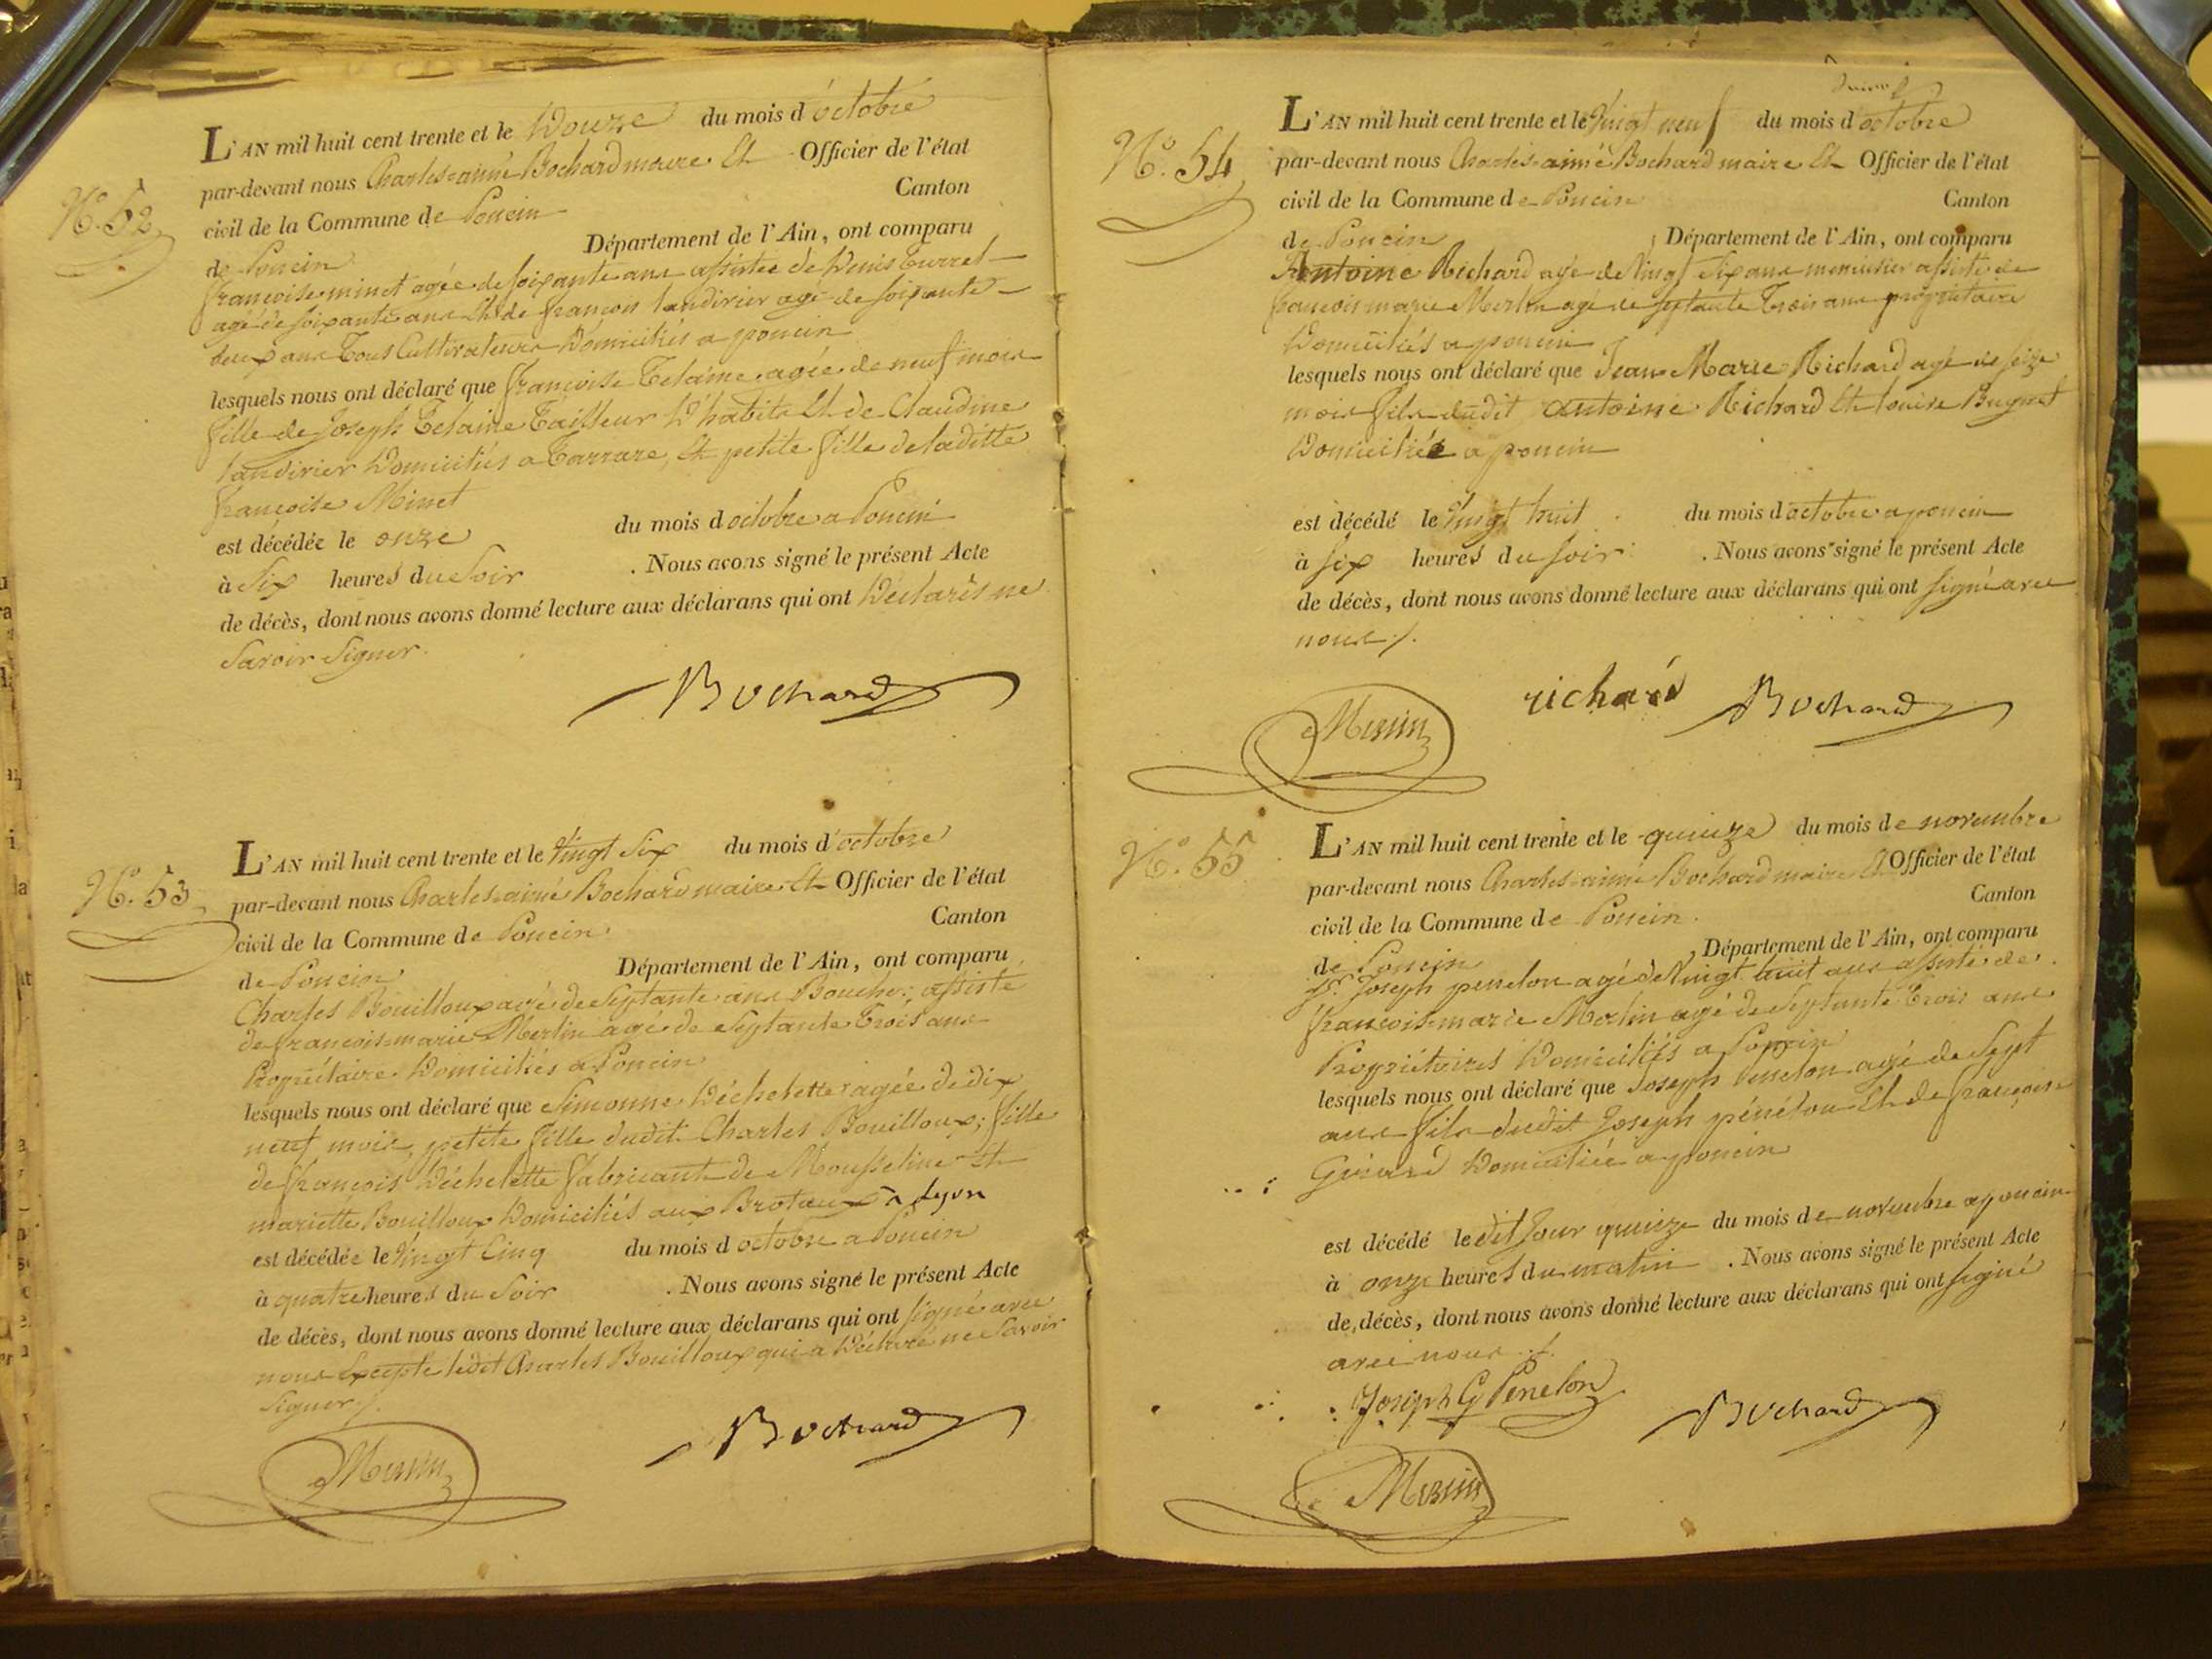 N.º 52
L'AN mil huit cent trente et le Douze du mois d'octobre
par-devant nous Charles-aimé Bochard maire Et Officier de l'état
civil de la Commune de Poncin Canton
de Poncin Département de l'Ain, ont comparu
françoise minet agée de soixante ans assistée de Denis Turrel
agé de soixante ans Et de françois tandirier agé de soixante
deux ans Tous Cultivateurs Domiciliés a poncin
lesquels nous ont déclaré que françoise Telaine agée de neuf mois
fille de Joseph Telaine Tailleur D'habits Et de Claudine
tandirier Domiciliés a Tarrare, Et petite fille de laditte
françoise Minet
est décédée le onze du mois d octobre a Poncin
à Six heures du Soir . Nous avons signé le présent Acte
de décès, dont nous avons donné lecture aux déclarans qui ont Déclarés ne
Savoir Signer.
Bochard
N.º 53
L'AN mil huit cent trente et le Vingt Six du mois d'octobre
par-devant nous Charles-aimé Bochard maire Et Officier de l'état
civil de la Commune de Poncin Canton
de Poncin Département de l'Ain, ont comparu
Charles Bouilloux agé de Septante ans Boucher, assisté
de françois-marie Merlin agé de Septante Trois ans
Propriétaire Domiciliés a Poncin
lesquels nous ont déclaré que Simonne Déchelette agée de dix
neuf mois, petite fille dudit Charles Bouilloux; fille
de françois Déchelette fabricant de Mousseline Et
mariette Bouilloux Domiciliés aux Brotaux à Lyon
est décédée le Vingt Cinq du mois d octobre a Poncin
à quatre heures du Soir . Nous avons signé le présent Acte
de décès, dont nous avons donné lecture aux déclarans qui ont signé avec
nous Excepté ledit Charles Bouilloux qui a Déclaré ne Savoir
Signer /.
Merlin Bochard
N.º 54
L'AN mil huit cent trente et le Vingt neuf du mois d'octobre
par-devant nous Charles-aimé Bochard maire Et Officier de l'état
civil de la Commune de Poncin Canton
de Poncin Département de l'Ain, ont comparu
Antoine Richard agé de Vingt Six ans menuisier assisté de
françois marie Merlin agé de septante Trois ans propriétaire
Domiciliés a poncin
lesquels nous ont déclaré que Jean Marie Richard agé de seize
mois fils dudit antoine Richard Et louise Bugnet
Domiciliés a poncin
est décédé le Vingt huit du mois d octobre a poncin
à six heures du soir . Nous avons signé le présent Acte
de décès, dont nous avons donné lecture aux déclarans qui ont signé avec
nous /.
Merlin richard Bochard
N.º 55
L'AN mil huit cent trente et le quinze du mois de novembre
par-devant nous Charles-aimé Bochard maire Et Officier de l'état
civil de la Commune de Poncin Canton
de Poncin , Département de l'Ain, ont comparu
Sr. Joseph penelon agé de Vingt huit ans assisté de
françois-marie Merlin agé de Septante Trois ans
Propriétaires Domiciliés a Poncin
lesquels nous ont déclaré que Joseph Penelon agé de Sept
ans fils dudit Joseph pénélon Et de françoise
Girard Domiciliée a poncin
est décédé le dit Jour quinze du mois de novembre a poncin
à onze heures du matin . Nous avons signé le présent Acte
de décès, dont nous avons donné lecture aux déclarans qui ont signé
avec nous /.
Joseph G Penelon Bochard
Merlin